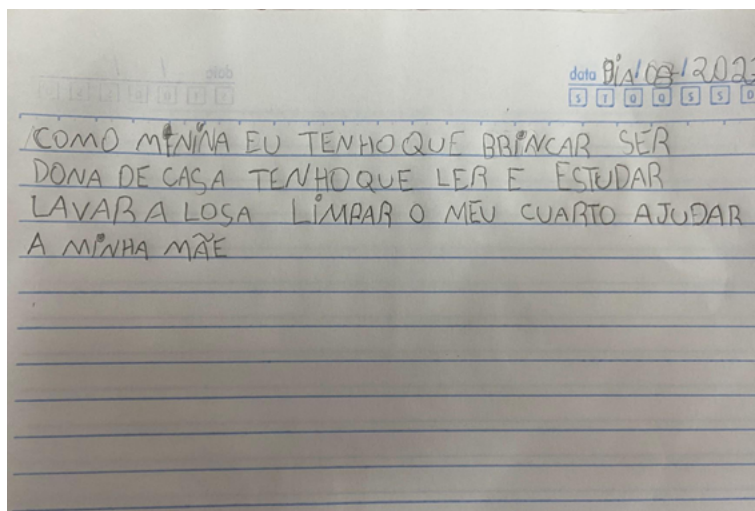 data DIA/08/202
S T Q Q S S D
COMO MENINA EU TENHO QUE BRINCAR SER
DONA DE CASA TENHO QUE LER E ESTUDAR
LAVAR A LOSA LIMPAR O MEU CUARTO AJUDAR
A MINHA MÃE